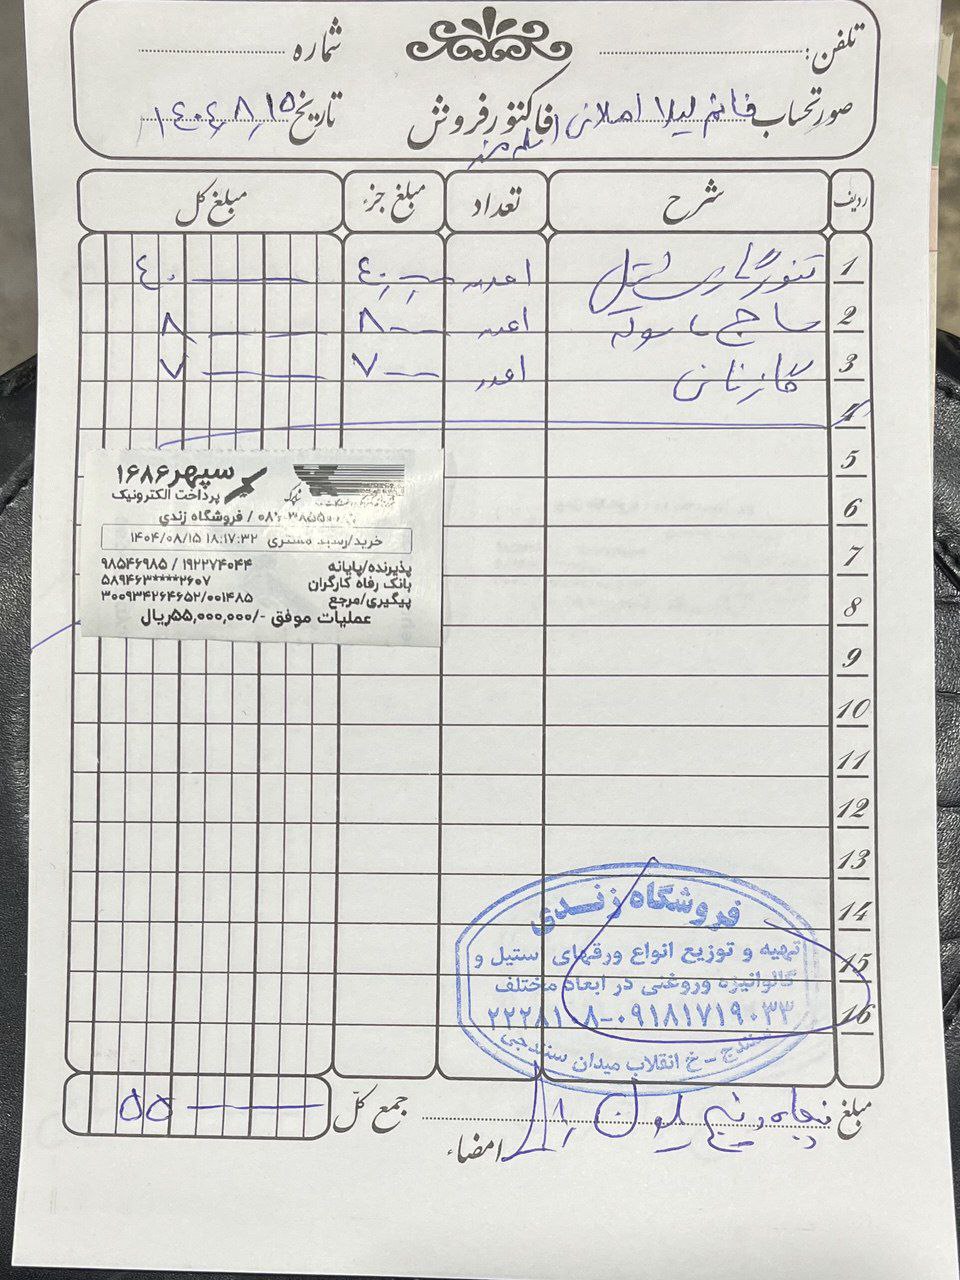 تلفن:
شماره
صورتحساب خانم لیلا اصلانی
فاکتور فروش
تاریخ ۱۴۰۴٫۸٫۱۵
ردیف شرح تعداد مبلغ جزء مبلغ کل
1 تنور گازی استیل ۱عدد ۴۰ ۴۰
2 ساج ماسوله ۱عدد ۸ ۸
3 گاز نانی ۱عدد ۷ ۷
4
5
سپهر ۱۶۸۶
پرداخت الکترونیک
/ فروشگاه زندی
خرید/رسید مشتری ۱۴۰۴/۰۸/۱۵ ۱۸:۱۷:۳۲
پذیرنده/پایانه ۱۹۲۲۷۴۰۴۴ / ۹۸۵۴۶۹۸۵
بانک رفاه کارگران ۵۸۹۴۶۳****۲۶۰۷
پیگیری/مرجع ۳۰۰۹۳۴۲۶۴۶۵۲/۰۰۱۴۸۵
عملیات موفق -/۵۵,۰۰۰,۰۰۰ریال
6
7
8
9
10
11
12
13
14
15
16
فروشگاه زندی
تهیه و توزیع انواع ورقهای استیل و
گالوانیزه وروغنی در ابعاد مختلف
۲۲۲۸۱۰۸-۰۹۱۸۱۷۱۹۰۳۳
سنندج - خ انقلاب میدان سنندجی
مبلغ
جمع کل ۵۵
امضاء